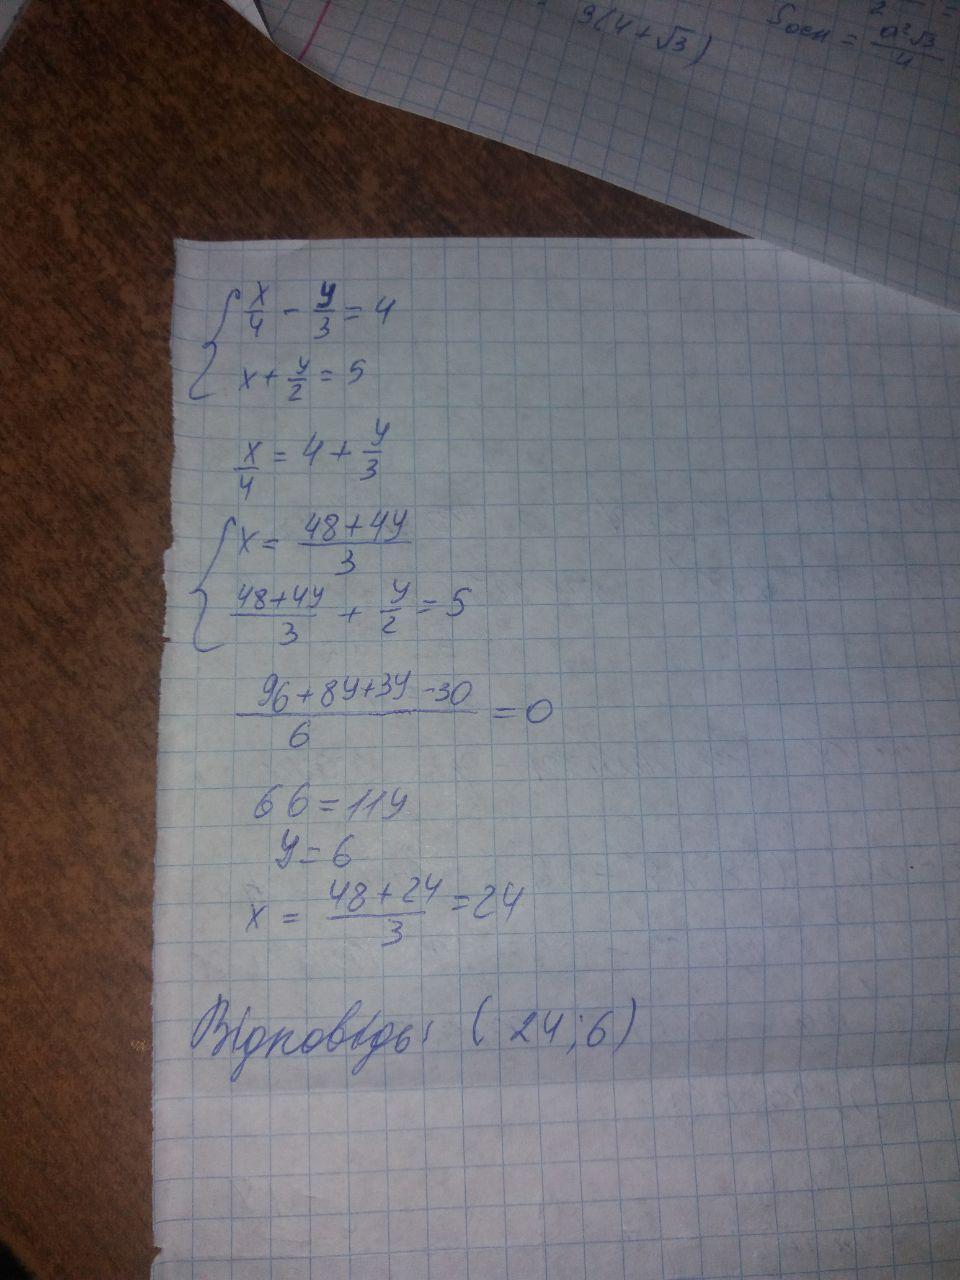 9(4+√3)
Sосн = a²√3/4
{ x/4 - y/3 = 4
x + y/2 = 5
x/4 = 4 + y/3
{ x = (48+4y)/3
(48+4y)/3 + y/2 = 5
(96+8y+3y-30)/6 = 0
66 = 11y
y = 6
x = (48+24)/3 = 24
Відповідь: (24;6)